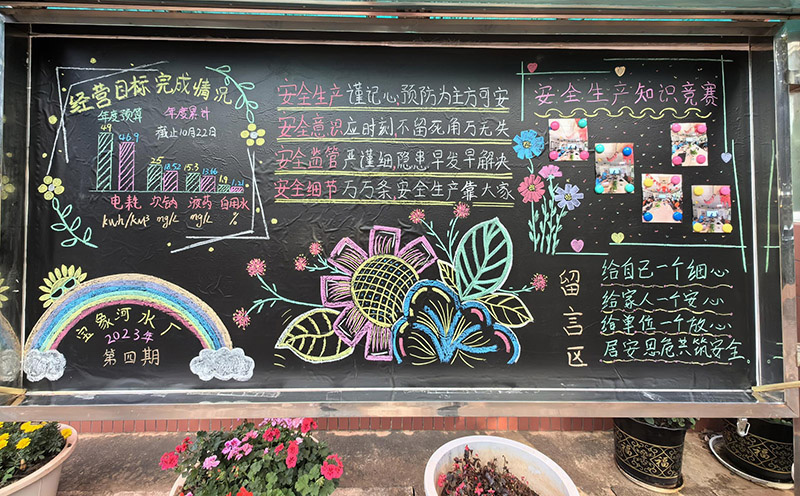 经营目标完成情况
年度预算 年度累计
截止10月22日
49 46.9
25 18.52 15.3 13.66 1.9
电耗 次钠 液药 自用水
kwh/km³ mg/L mg/L %
宝象河水厂
2023年
第四期
安全生产谨记心,预防为主方可安
安全意识应时刻,不留死角万无失
安全监管严谨细,隐患早发早解决
安全细节万万条,安全生产靠大家
安全生产知识竞赛
留言区
给自己一个细心
给家人一个安心
给单位一个放心
居安思危共筑安全.